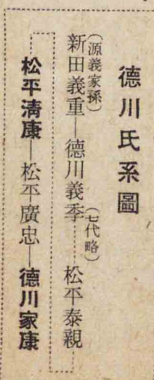 德川氏系圖
(源義家孫)
新田義重—德川義季(七代略)松平泰親
松平清康—松平廣忠—德川家康